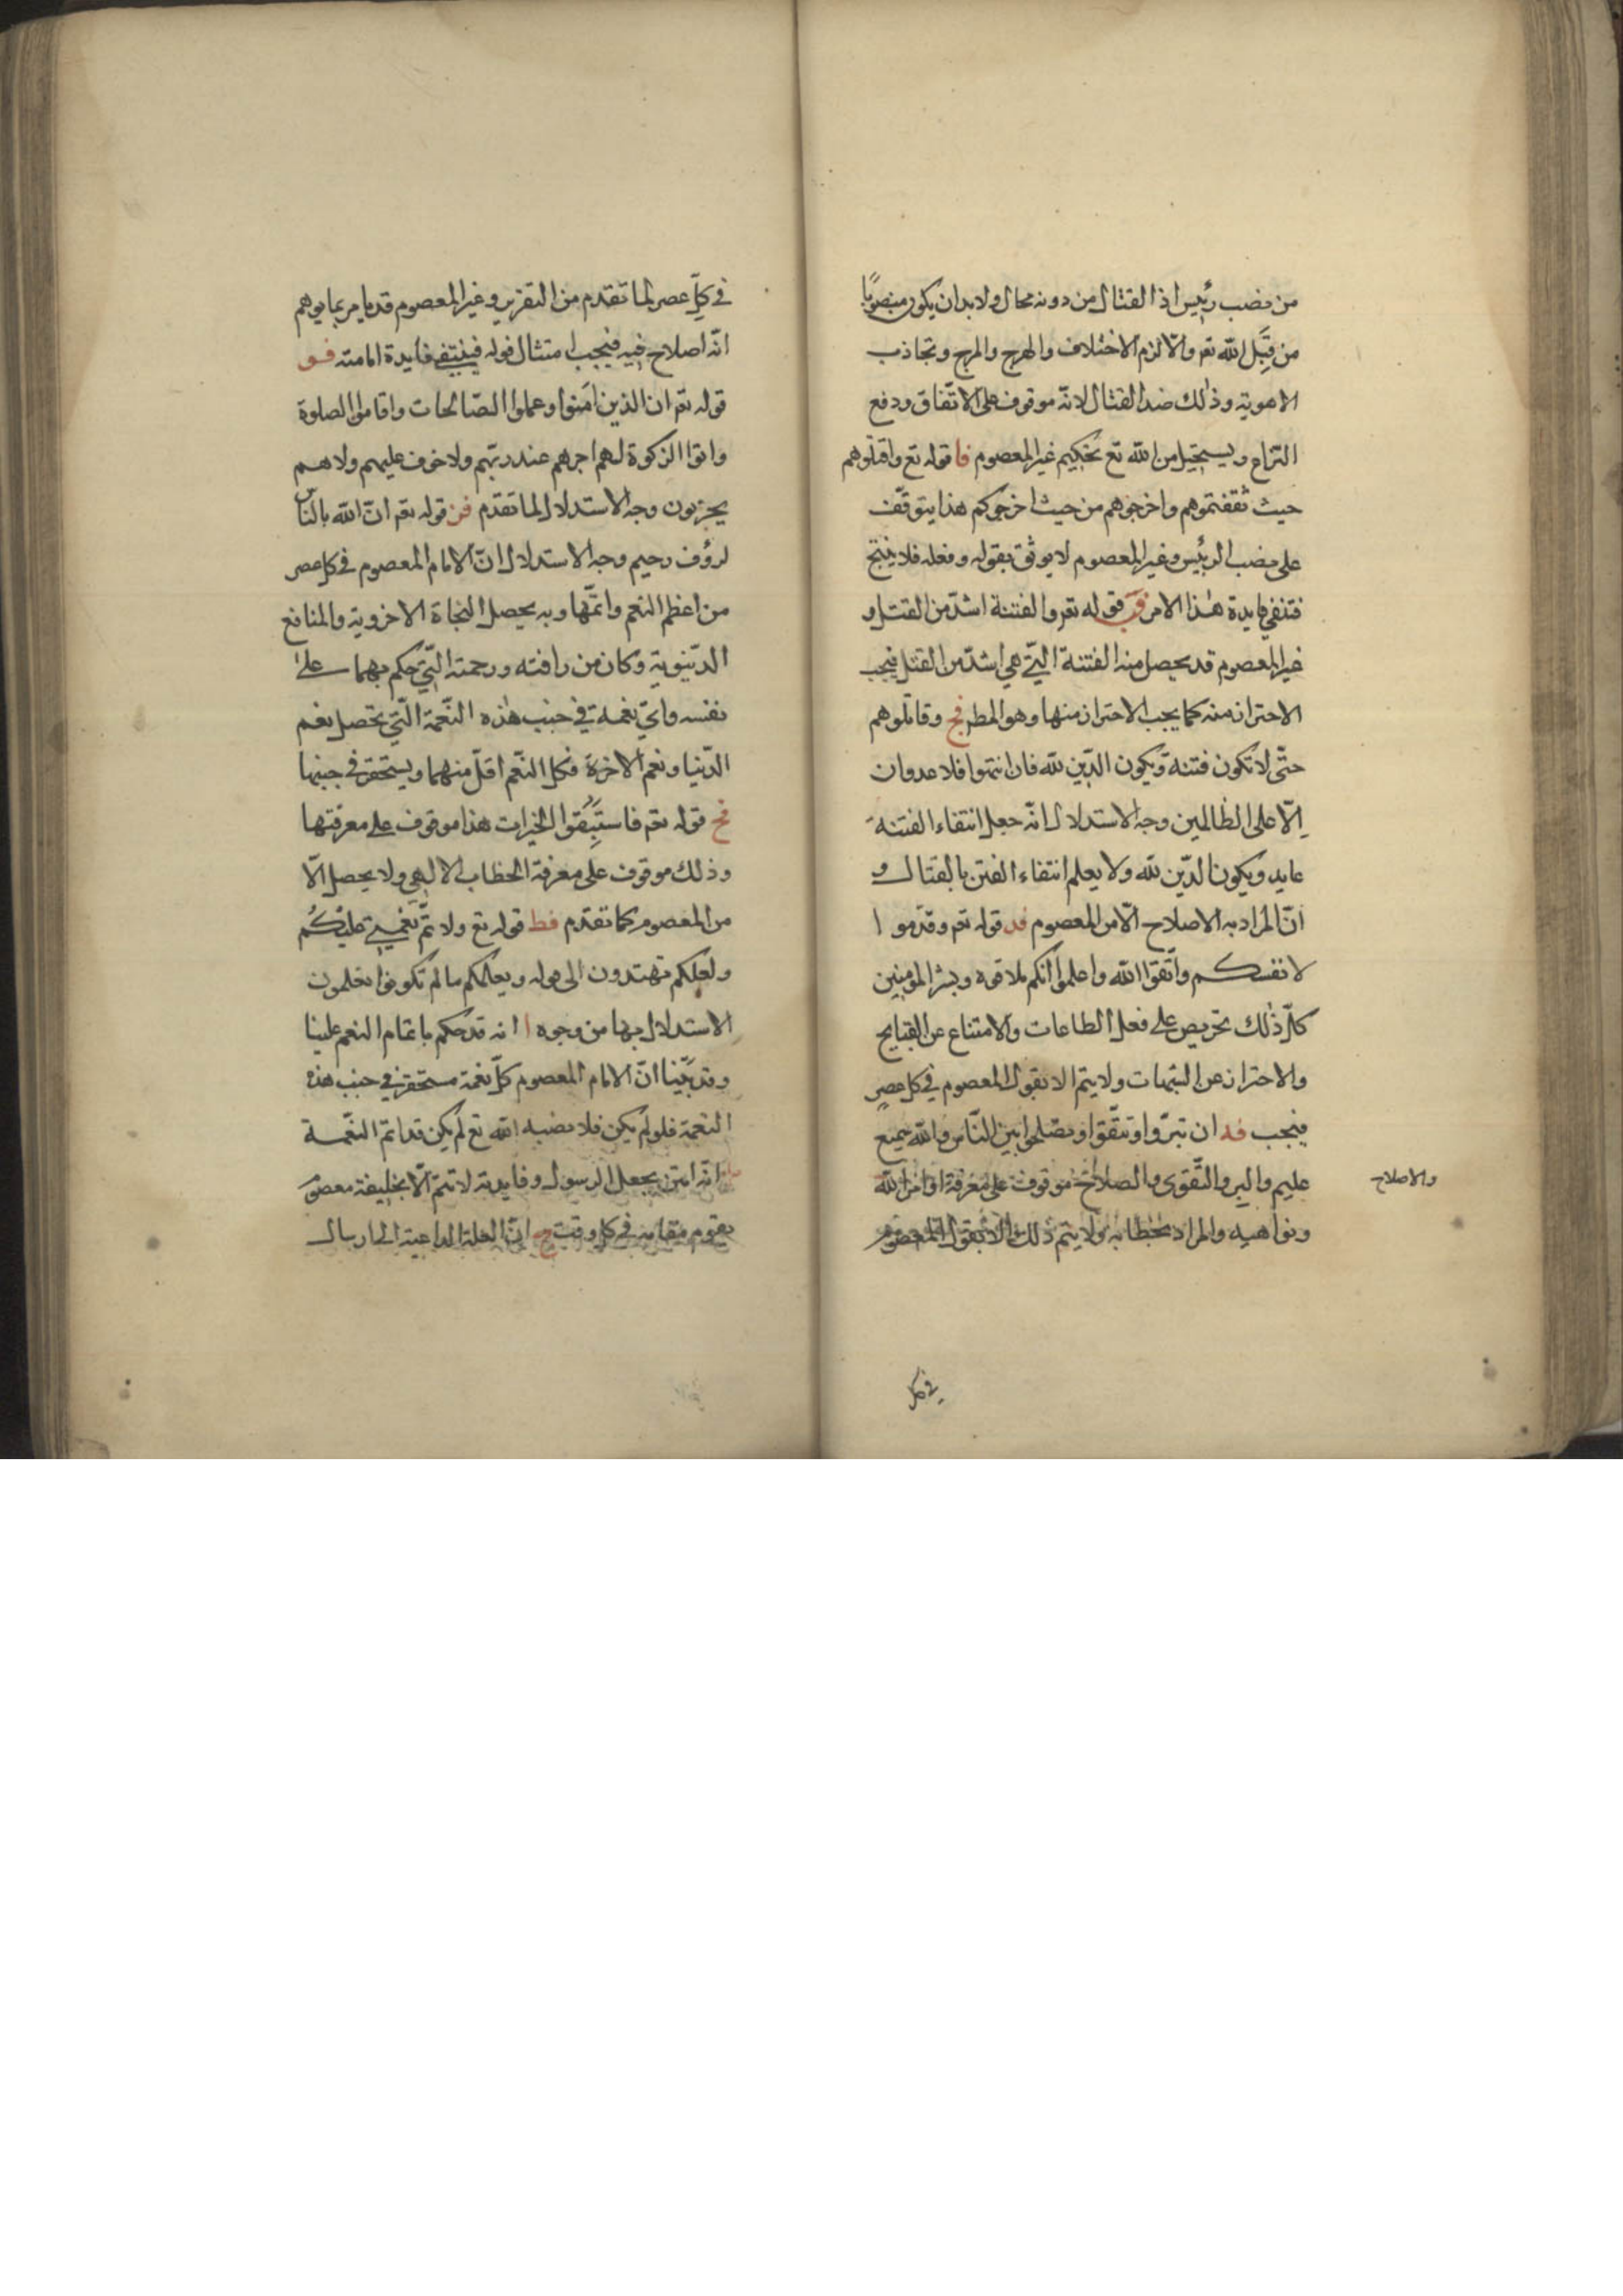 من نصب رئيس اذ القتال من دونه محال ولا بد ان يكون منصوبًا
من قِبَل الله تعم والّا لزم الاختلاف والهرج والمرج وتجاذب
الاهوية وذلك ضد القتال لانّه موقوف على الاتّفاق ودفع
النزاع ويستحيل من الله تع تحكيم غير المعصوم فا قوله تع واقتلوهم
حيث ثقفتموهم واخرجوهم من حيث اخرجوكم هذا يتوقف
على نصب الرئيس وغير المعصوم لا يوثق بقوله وفعله فلا ينتج
فتنفي فايدة هٰذا الامر فب قوله تعم والفتنة اشدّ من القتل و
غير المعصوم قد يحصل منه الفتنة الّتي هي اشدّ من القتل فيجب
الاحتراز منه كما يجب الاحتراز منها وهو المط فج وقاتلوهم
حتّى لا تكون فتنة ويكون الدّين لله فان انتهوا فلا عدوان
اِلّا على الظالمين وجه الاستدلال انّه جعل انتفاء الفتنة
غايه ويكون الدّين لله ولا يعلم انتفاء الفتن بالقتال و
انّ المراد به الاصلاح الّا من المعصوم فد قوله تعم وقدّموا
لانفسكم واتّقوا الله واعلموا انّكم ملاقوه وبشر المؤمنين
كلّ ذٰلك تحريص على فعل الطاعات والامتناع عن القبايح
والاحتراز عن الشبهات ولا يتم الا بقول المعصوم في كل عصرٍ
فيجب فه ان تبرّوا وتتّقوا وتصلحوا بين النّاس والله سميع
عليم والبر والتّقوى والصلاح موقوف على معرفة اوامر الله
والاصلاح
ونواهيه والمراد بخطابه ولا يتم ذلك الّا بقول المعصوم
في كل
في كلّ عصر لما تقدم من التقرير وغير المعصوم قد يامر بما يوهم
انّه اصلاح فيه فيجب امتثال قوله فينتفي فايدة امامته فو
قوله تعم ان الذين آمنوا وعملوا الصّالحات واقاموا الصلوة
واتوا الزكوة لهم اجرهم عند ربّهم ولا خوف عليهم ولا هم
يحزنون وجه الاستدلال لما تقدم فز قوله تعم انّ الله بالنّاس
لرؤف رحيم وجه الاستدلال انّ الامام المعصوم في كل عصر
من اعظم النعم واتمّها وبه يحصل النجاة الاخروية والمنافع
الدّنيوية وكان من رافته ورحمته الّتي حكم بهما على
نفسه وايّ نعمة في جنب هٰذه النّعمة الّتي تحصل نعم
الدّنيا ونعم الاخرة فكل النّعم اقلّ منهما ويستحقر في جنبها
فح قوله تعم فاستَبِقُوا الخيرات هذا موقوف على معرفتها
وذلك موقوف على معرفة الخطاب الالٰهي ولا يحصل الّا
من المعصوم كما تقدّم فط قوله تع ولاتمّ نعمتي عليكُم
ولعلكم تهتدون الى قوله ويعلّمكم ما لم تكونوا تعلمون
الاستدلال بها من وجوه ا انه قد حكم باتمام النعم علينا
وقد بيّنا انّ الامام المعصوم كلّ نعمة مستحقر في جنب هذه
النعمة فلو لم يكن فلا نصبه الله تع لم يكن قد اتمّ النّعمة
انّه امتنّ بجعل الرسول وفايدته لا تتمّ الّا بخليفة معصوم
يقوم مقامه في كل وقت ج انّ العلة الداعية الى ارسال